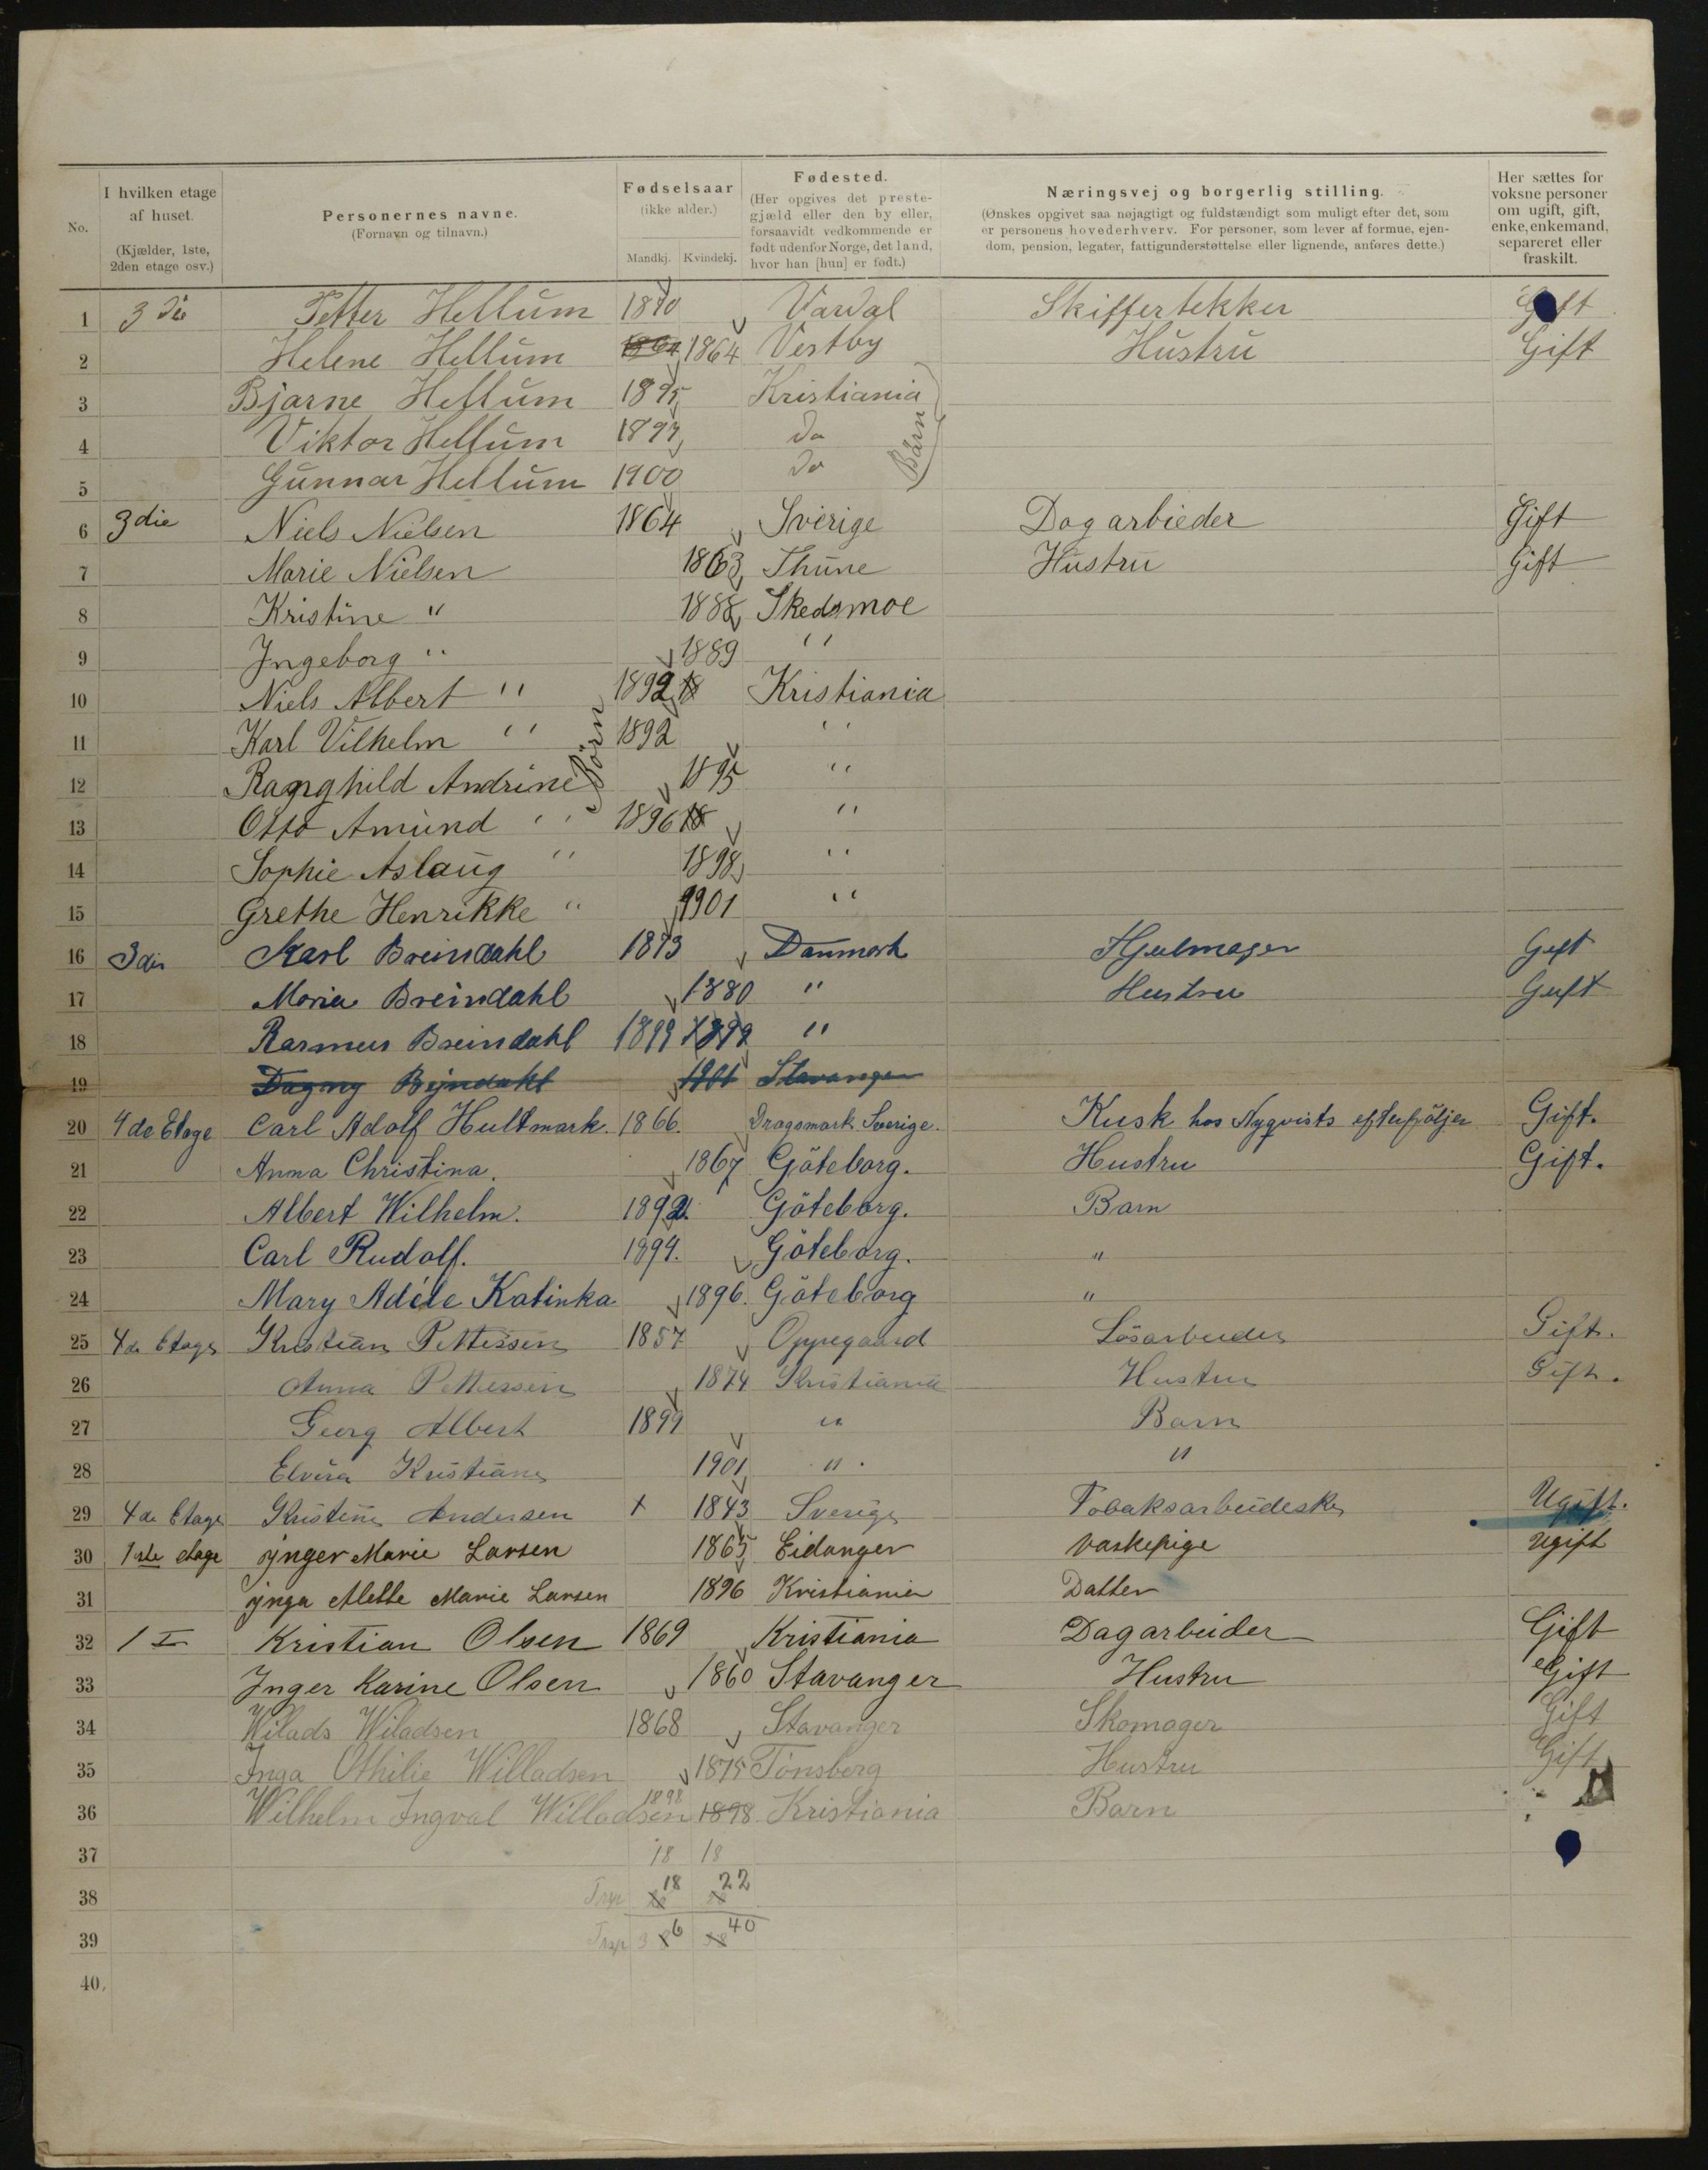 No.
I hvilken etage af huset.
(Kjælder, 1ste, 2den etage osv.)
Personernes navne.
(Fornavn og tilnavn.)
Fødselsaar
(ikke alder.)
Mandkj. Kvindekj.
Fødested.
(Her opgives det prestegjæld eller den by eller, forsaavidt vedkommende er født udenfor Norge, det land, hvor han [hun] er født.)
Næringsvej og borgerlig stilling.
(Ønskes opgivet saa nøjagtigt og fuldstændigt som muligt efter det, som er personens hovederhverv. For personer, som lever af formue, ejendom, pension, legater, fattigunderstøttelse eller lignende, anføres dette.)
Her sættes for voksne personer om ugift, gift, enke, enkemand, separeret eller fraskilt.
1 3die Petter Hellum 1870 Vardal Skiffertekker Gift
2 Helene Hellum 1864 1864 Vestby Hustru Gift
3 Bjarne Hellum 1895 Kristiania
4 Viktor Hellum 1897 Do
5 Gunnar Hellum 1900 Do
Børn
6 3die Niels Nielsen 1864 Sverige Dagarbieder Gift
7 Marie Nielsen 1863 Thune Hustru Gift
8 Kristine " 1888 Skedsmoe
9 Ingeborg " 1889 "
10 Niels Albert " 1892 18 Kristiania
11 Karl Vilhelm " 1892 "
12 Ragnghild Andrine 1895 "
13 Otto Amund " 1896 18 "
14 Sophie Aslaug " 1898 "
15 Grethe Henrikke " 1901 "
Børn
16 3die Karl Breindahl 1873 Danmark Hjulmager Gift
17 Maria Breindahl 1880 " Hustru Gift
18 Rasmus Breindahl 1899 1899 "
19 Dagny Bejndahl 1901 Stavanger
20 4de Etage Carl Adolf Hultmark. 1866. Dragsmark Sverige. Kusk hos Nyqvists efterföljer Gift.
21 Anna Christina. 1867 Göteborg. Hustru Gift.
22 Albert Wilhelm. 1892. Göteborg. Barn
23 Carl Rudolf. 1894. Göteborg. "
24 Mary Adéle Katinka 1896. Göteborg "
25 4de Etage Kristian Pettersen 1857 Oppegaard Løsarbeider Gift.
26 Anna Pettersen 1874 Kristiania Hustru Gift.
27 Georg Albert 1899 " Barn
28 Elvira Kristiane 1901 " "
29 4de Etage Kristine Andersen x 1843 Sverige Tobaksarbeideske Ugift.
30 1ste etage Ynger Marie Larsen 1865 Eidanger Vaskepige Ugift
31 Ynga Alette Marie Larsen 1896 Kristiania Datter
32 1 I Kristian Olsen 1869 Kristiania Dagarbeider Gift
33 Inger Karine Olsen 1860 Stavanger Hustru Gift
34 Wilads Wiladsen 1868 Stavanger Skomager Gift
35 Inga Othilie Willadsen 1875 Tønsberg Hustru Gift
36 Wilhelm Ingval Willadsen 1898 1898 Kristiania Barn
37 18 18
38 18 22
39 36 40
40.